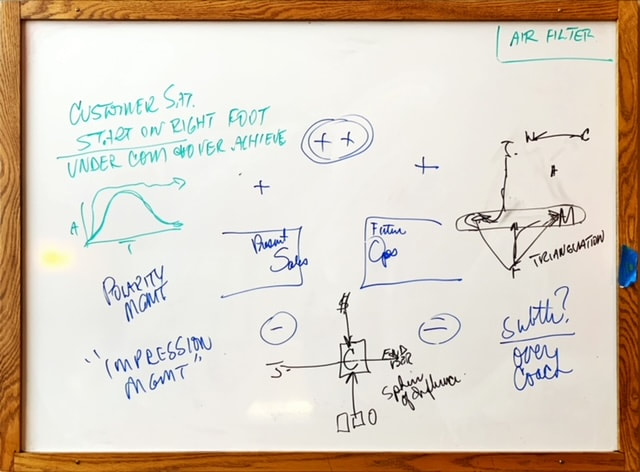 AIR FILTER
CUSTOMER SAT.
START ON RIGHT FOOT
UNDER COM OVER ACHIEVE
++
+
+
A
T
Present
Sales
Future
Ops
C
A
M
F
TRIANGULATION
POLARITY
MGMT
"IMPRESSION
MGMT"
-
=
$
C
END
USER
Sphere
of Influence
O
Subtle?
over
Coach